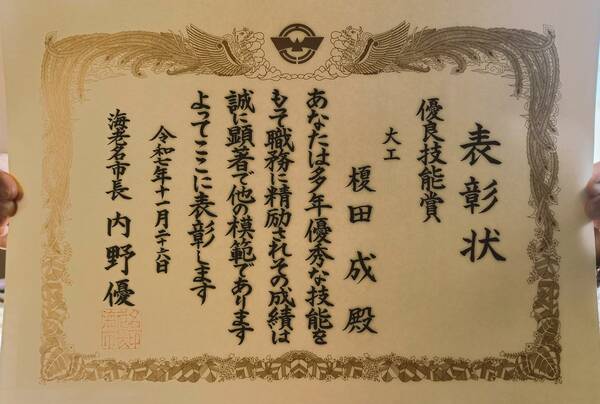 表彰状
優良技能賞
大工
榎田成殿
あなたは多年優秀な技能を
もって職務に精励されその成績は
誠に顕著で他の模範であります
よってここに表彰します
令和七年十一月二十六日
海老名市長 内野優